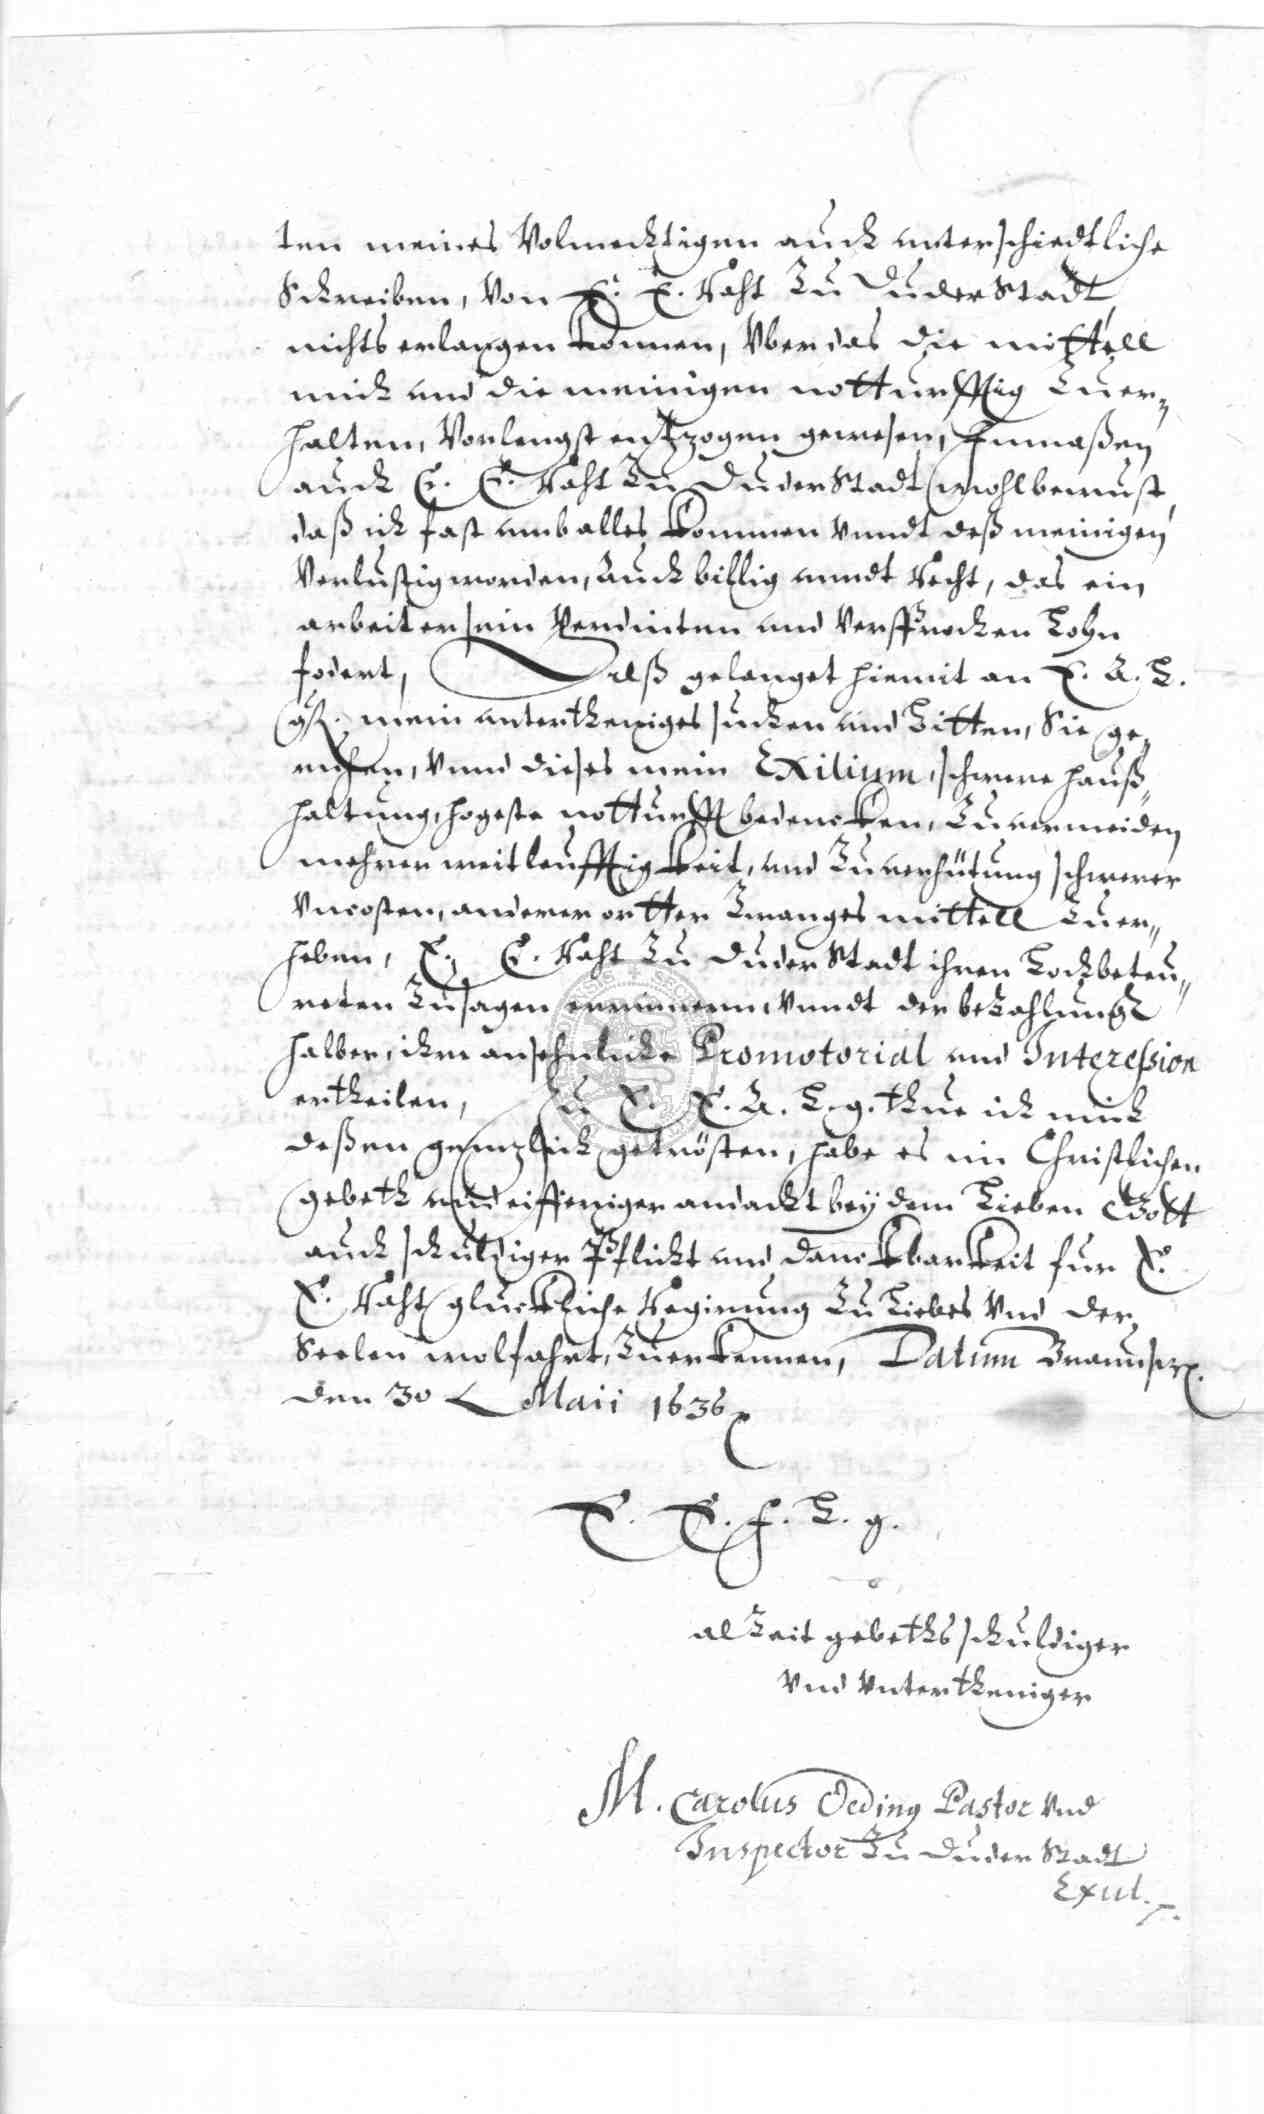 ten meines Volmechtigen auch unterschiedtliche
Schreiben, Von E. E. Raht Zu DuderStadt
nichts erlangen können, Vber das die mittell
mich und die meinigen notturfftig Zuer-
halten, Vorlengst entzogen gewesen, Inmaßen
auch E. E. Raht Zu DuderStadt wohlbewust,
daß ich fast umb alles kommen Vnndt deß meinigen
Verlustig worden, Auch billig unndt Recht, das ein
arbeiter sein Verdinten und Versprochen Lohn
fodert, Alß gelanget hiemit an E. A. L.
g. mein untertheniges suchen und Bitten, Sie ge-
ruhen, Vnnd dieses mein Exilium, schwere hauß-
haltung, hogeste notturfft bedencken, Zuvermeiden
mehrer weitleufftigkeit, und Zuverhütung schwerer
Vncosten, anderer ortter Zwanges mittell Zuer-
heben, E. E. Raht Zu DuderStadt ihren hochbeteu-
reten Zusagen erinnern, Vnndt der beZahlung
halber, ihre ansehnliche Promotorial und Intercession
ertheilen, Zu E. E. A. L. g. thue ich mich
deßen gentzlich getrösten, habe es im Christlichen
gebeth und eifferiger andacht bey dem Lieben Gott
auch schuldiger Pflicht und danckbarkeit fur E.
E. Raht glückliche Regirung Zu Liebes Vnd der
Seelen wolfahrt, Zuerkennen, Datum Braunschw.
den 30 Maii 1636
E. E. f. L. g.
alZeit gebethsschuldiger
Vnd Vntertheniger
M. Carolus Oeding Pastor Vnd
Inspector Zu DuderStadt
Exul.